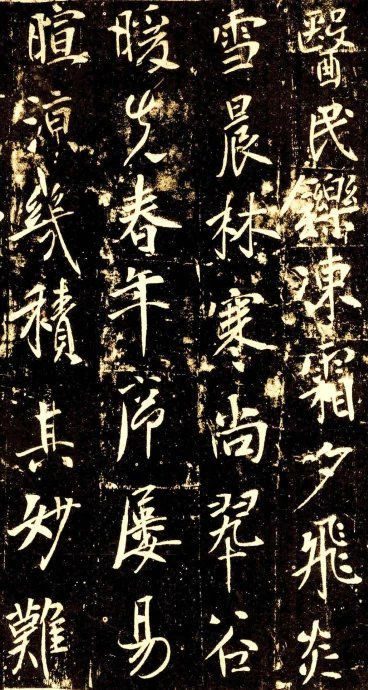 醫民鑠凍霜夕飛炎
雪晨林寒尚翠谷
暖先春年序屢易
暄涼幾積其妙難